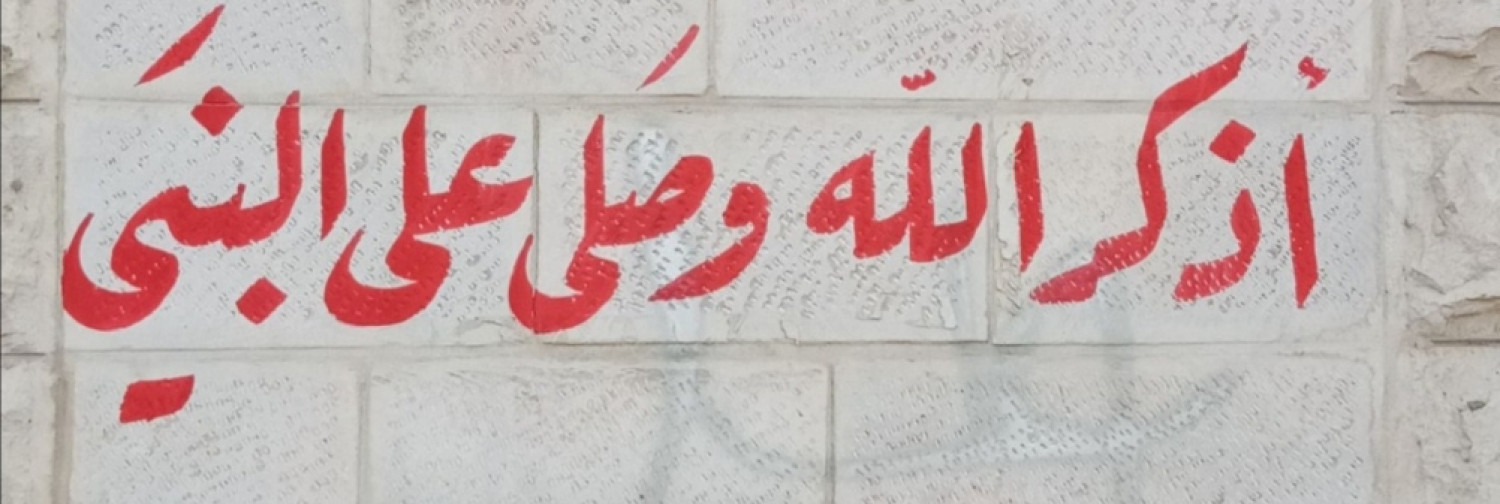 أذكر الله وصَلى على النبيَ